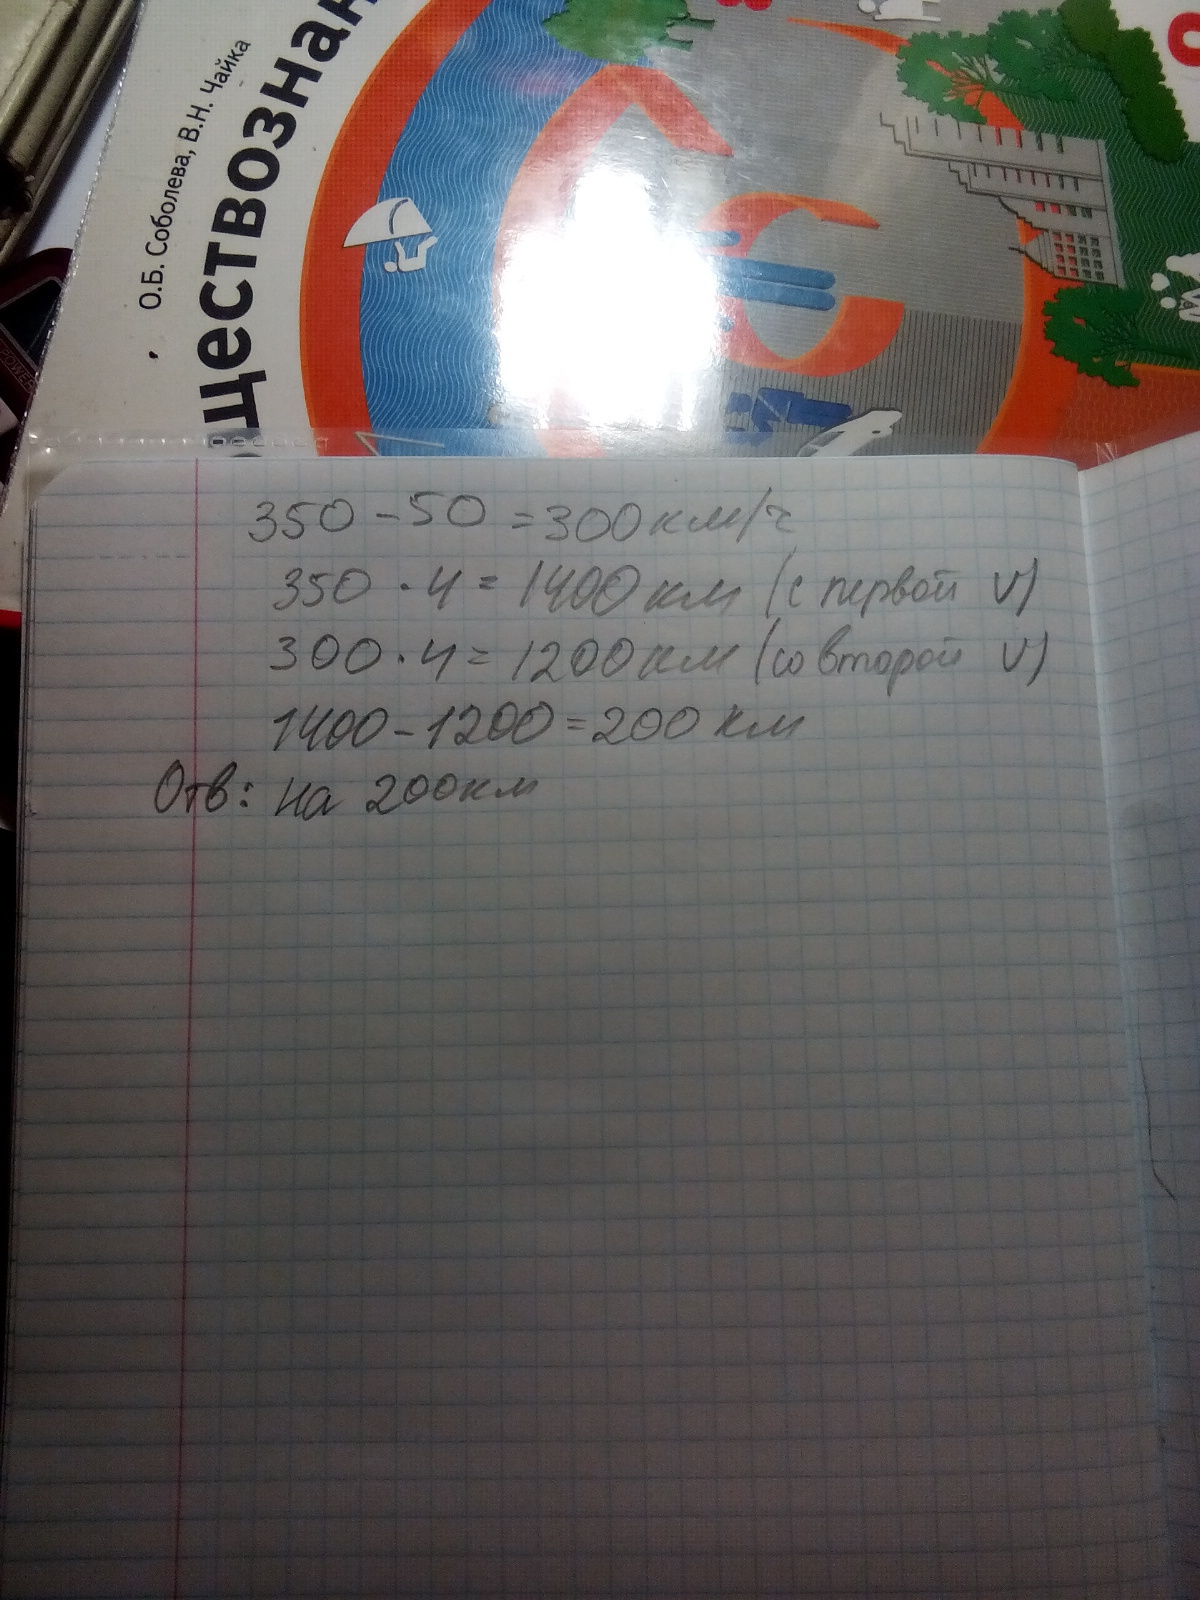 О.Б. Соболева, В.Н. Чайка
ществознан
POWER
350 - 50 = 300 км/ч
350 · 4 = 1400 км (с первой v)
300 · 4 = 1200 км (со второй v)
1400 - 1200 = 200 км
Отв: на 200 км